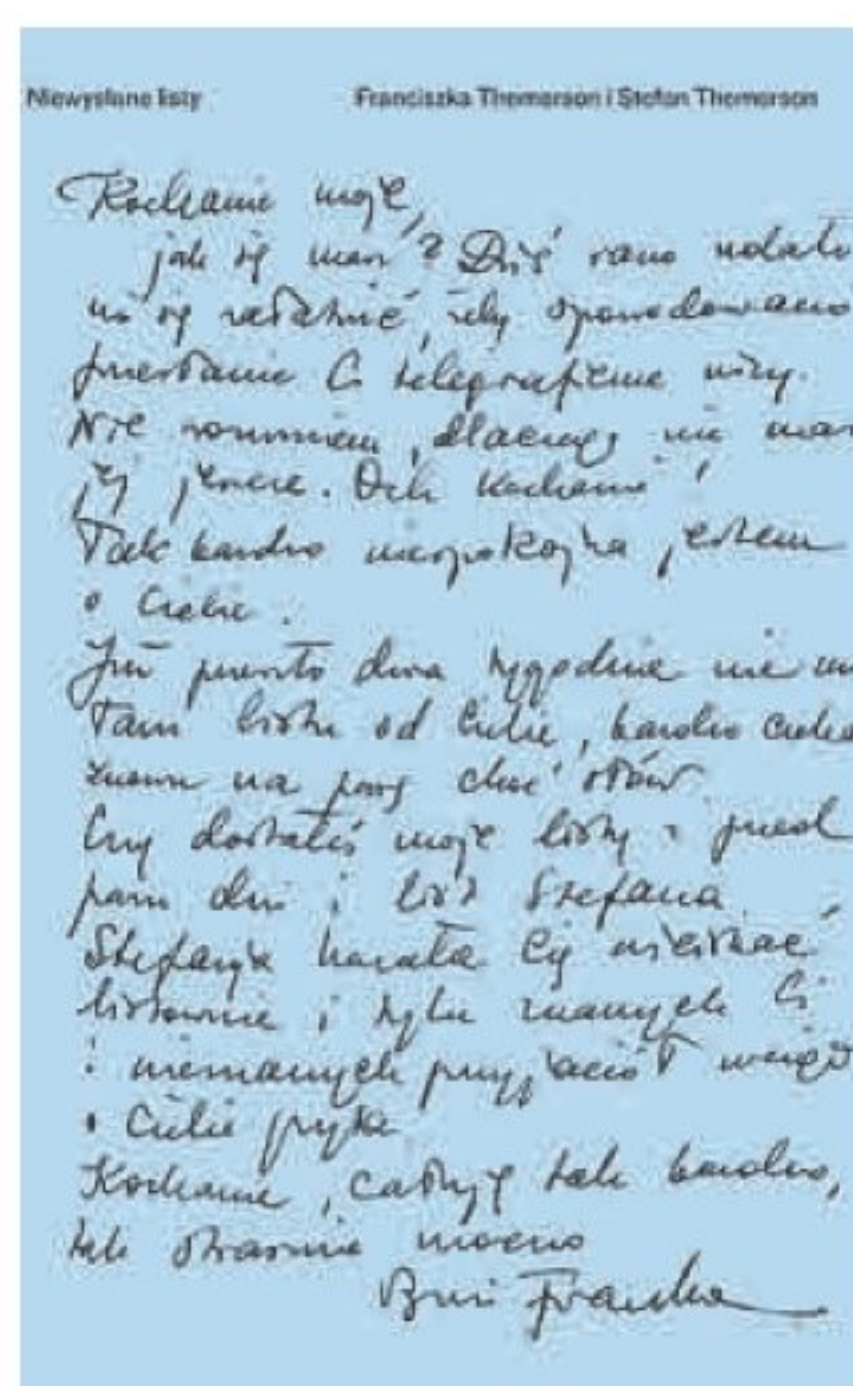 Niewysłane listy Franciszka Themerson i Stefan Themerson
Kochanie moje,
jak się masz? Dziś rano udało
mi się załatwić, żeby spowodowano
przesłanie Ci telegraficzne wizy.
Nie rozumiem, dlaczego nie masz
jej jeszcze. Och kochanie!
Tak bardzo niespokojna jestem
o Ciebie.
Już prawie dwa tygodnie nie mi
listu od Ciebie, bardzo
znowu na parę choć słów
Czy dostałeś moje listy sprzed
paru dni i list Stefana
Stefania kazała Cię uściskać
listownie i tylu znanych Ci
i nieznanych przyjaciół wciąż
o Ciebie pyta
Kochanie, całuję tak bardzo,
tak strasznie mocno
Franka